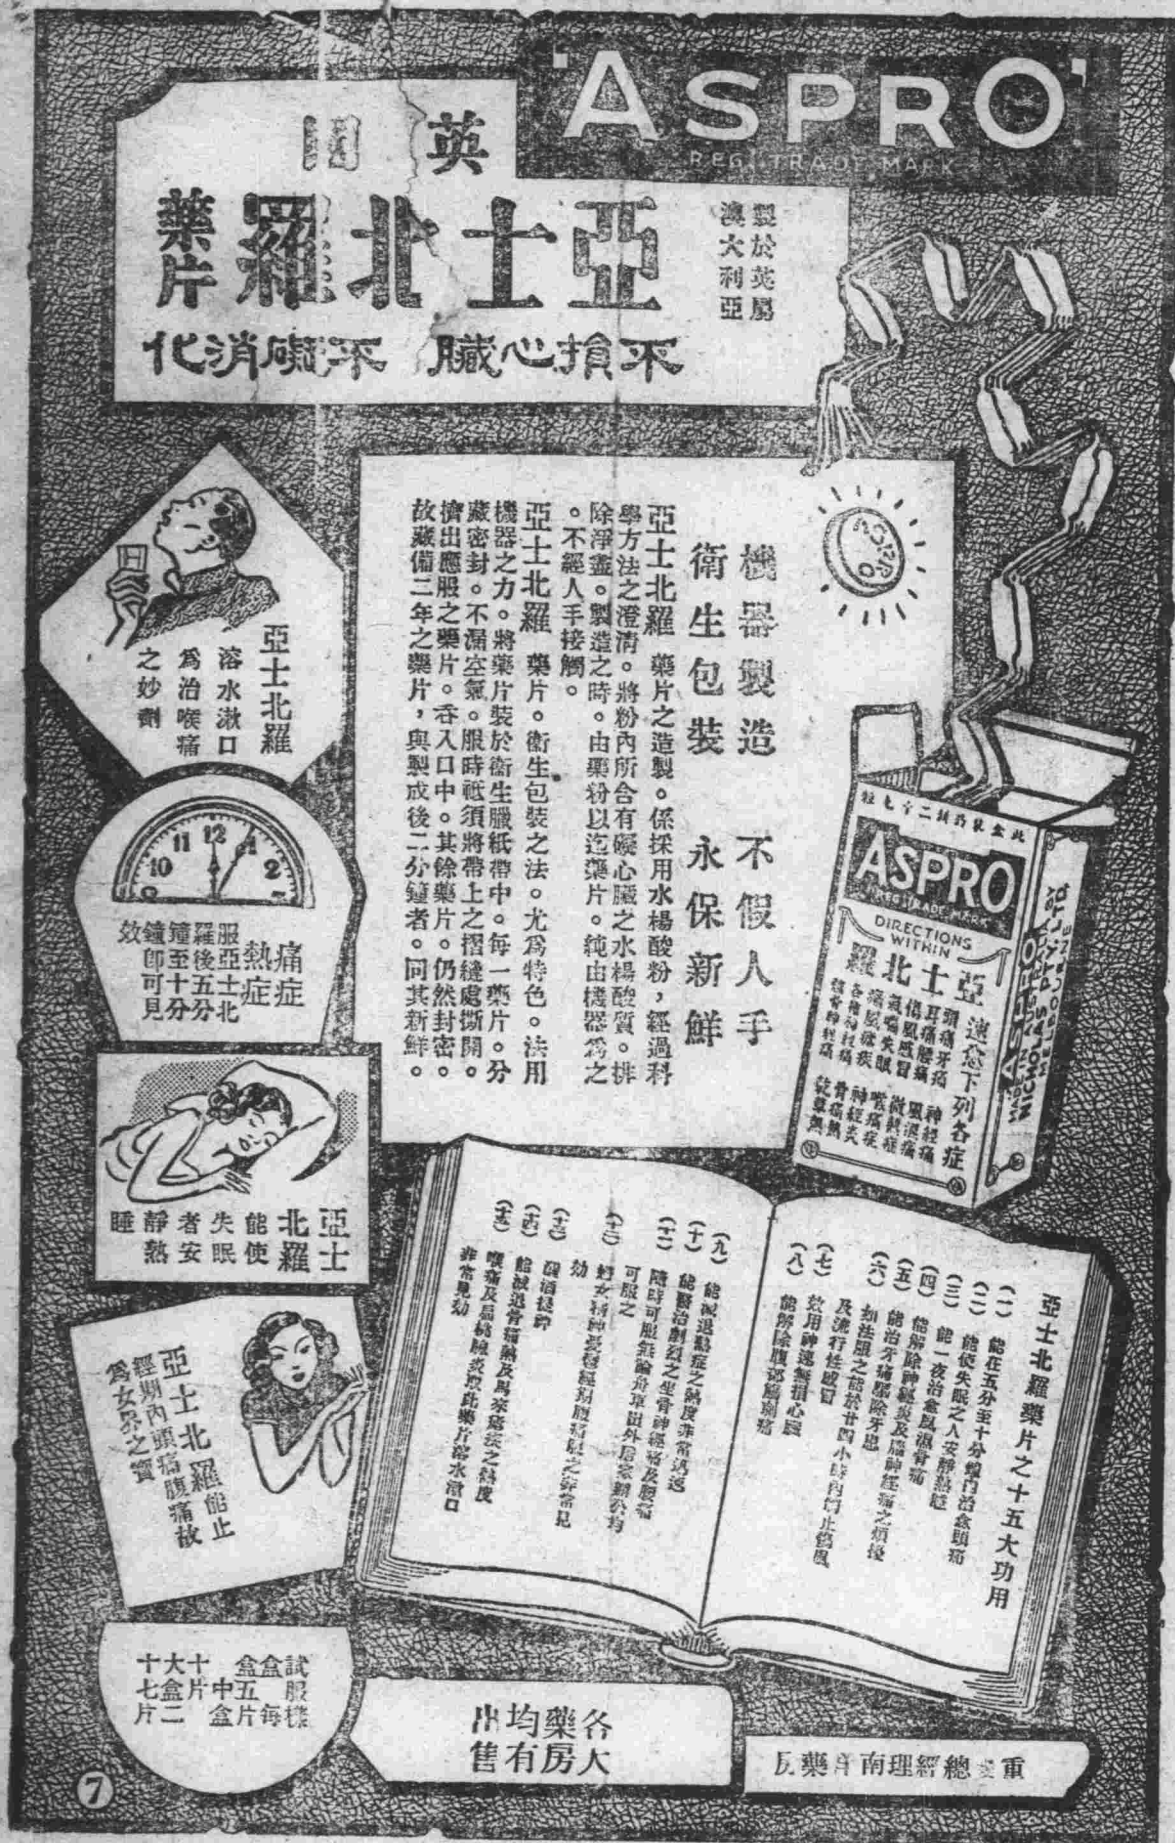 'ASPRO'
REG. TRADE MARK
英國
製於英屬
澳大利亞
亞士北羅
藥片
不損心臟 不礙消化
機器製造 不假人手
衛生包裝 永保新鮮
亞士北羅 藥片之造製。係採用水楊酸粉，經過科
學方法之澄清。將粉內所含有礙心臟之水楊酸質。排
除淨盡。製造之時。由藥粉以迄藥片。純由機器為之
。不經人手接觸。
亞士北羅 藥片。衛生包裝之法。尤為特色。法用
機器之力。將藥片裝於衛生臘紙帶中。每一藥片。分
藏密封。不漏空氣。服時祗須將帶上之摺縫處撕開。
擠出應服之藥片。吞入口中。其餘藥片。仍然封密。
故藏備二年之藥片，與製成後二分鐘者。同其新鮮。
ASPRO
亞士北羅
溶水漱口
為治喉痛
之妙劑
10 11 12 1 2
痛症
熱症
服亞士北
羅後五分
鐘至十分
鐘即可見
效
亞士
北羅
能使
失眠
者安
靜熟
睡
亞士北羅能止
經期內頭痛腹痛故
為女界之寶
此盒裝藥片二十七粒
ASPRO
REG. TRADE MARK
DIRECTIONS
WITHIN
亞士北羅
速愈下列各症
頭痛牙痛 神經痛
耳痛腰痛 風濕痛
傷風感冒
喉痛症
神經炎
骨痛熱
NICHOLAS PTY. LTD.
MELBOURNE
亞士北羅藥片之十五大功用
(一) 能在五分至十分鐘內治愈頭痛
(二) 能使失眠之人安靜熟睡
(三) 能一夜治愈風濕骨痛
(四) 能解除神經炎及腦神經痛之煩擾
(五) 能治牙痛驅除牙患
(六) 如法服之能於廿四小時內制止傷風
及流行性感冒
(七) 效用神速無損心臟
(八) 能解除腹部節制痛
(九) 能減退熱症之熱度非常迅速
(十) 能醫治劇烈之坐骨神經痛及腰痛
(十一) 隨時可服無論舟車出外居家辦公均
可服之
(十二) 婦女精神憂鬱經期腹痛服之非常見
効
(十三) 醒酒提神
(十四) 能減退骨痛熱及馬來瘧疾之熱度
(十五) 喉痛及扁桃腺炎取此藥片溶水漱口
非常見効
試服樣
盒每
盒五片
中盒
十片
大盒二
十七片
各大
藥房
均有
出售
總經理南洋藥房
7